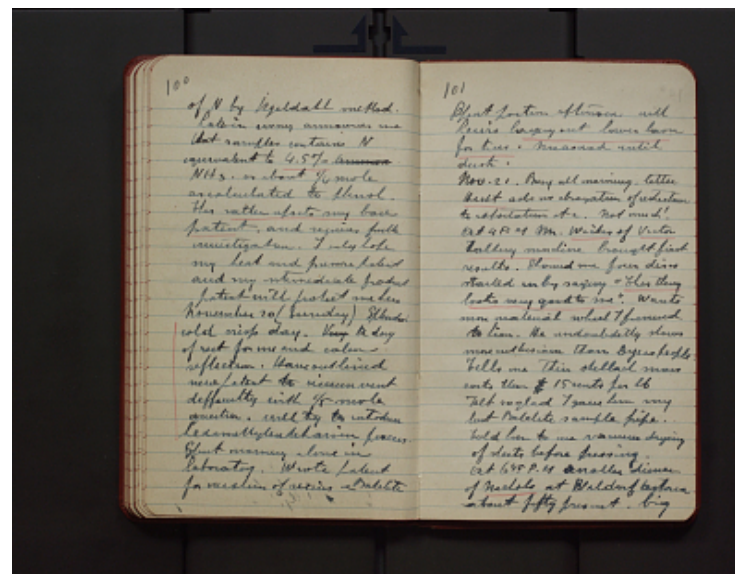 100
of N by Kjeldahl method.
Lateron every announces me
that samples contains N
equivalent to 4.5% ammon
NH3. or about 1/6 mole
as calculated to phenol.
This rather upsets my base
patent, and requires fuller
investigation. I only hope
my heat and pressure patent
and my intermediate product
patent will protect me here
November 20 (Sunday) Splendid
cold crisp day. Very A day
of rest for me and calm
reflection. Have outlined
new patent to circumvent
difficulty with 1/5 mole
question. will try to introduce
hexamethylentetramin process.
Spent morning alone in
laboratory. Wrote patent
for of resins + Bakelite
101
Spent portion afternoon with
carrying out lower
for tier. Measured until
dusk.
Nov. 21. Busy all morning. letter
about
to exportation etc. Not much!
At 4 P.M. Mr. of Victor
Talking machine brought first
results. Showed me four discs
Started in by saying "This thing
looks very good to me". Wants
more material which I promised
to him. He undoubtedly shows
more enthusiasm than people.
Tells me their shellack mass
costs them 15 cents per lb
I gave him my
last Bakelite sample pipe.
Told him to use vacuum drying
of discs before pressing.
At 6.45 P.M. another dinner
of Nichols at Waldorf Astoria
about fifty present. big